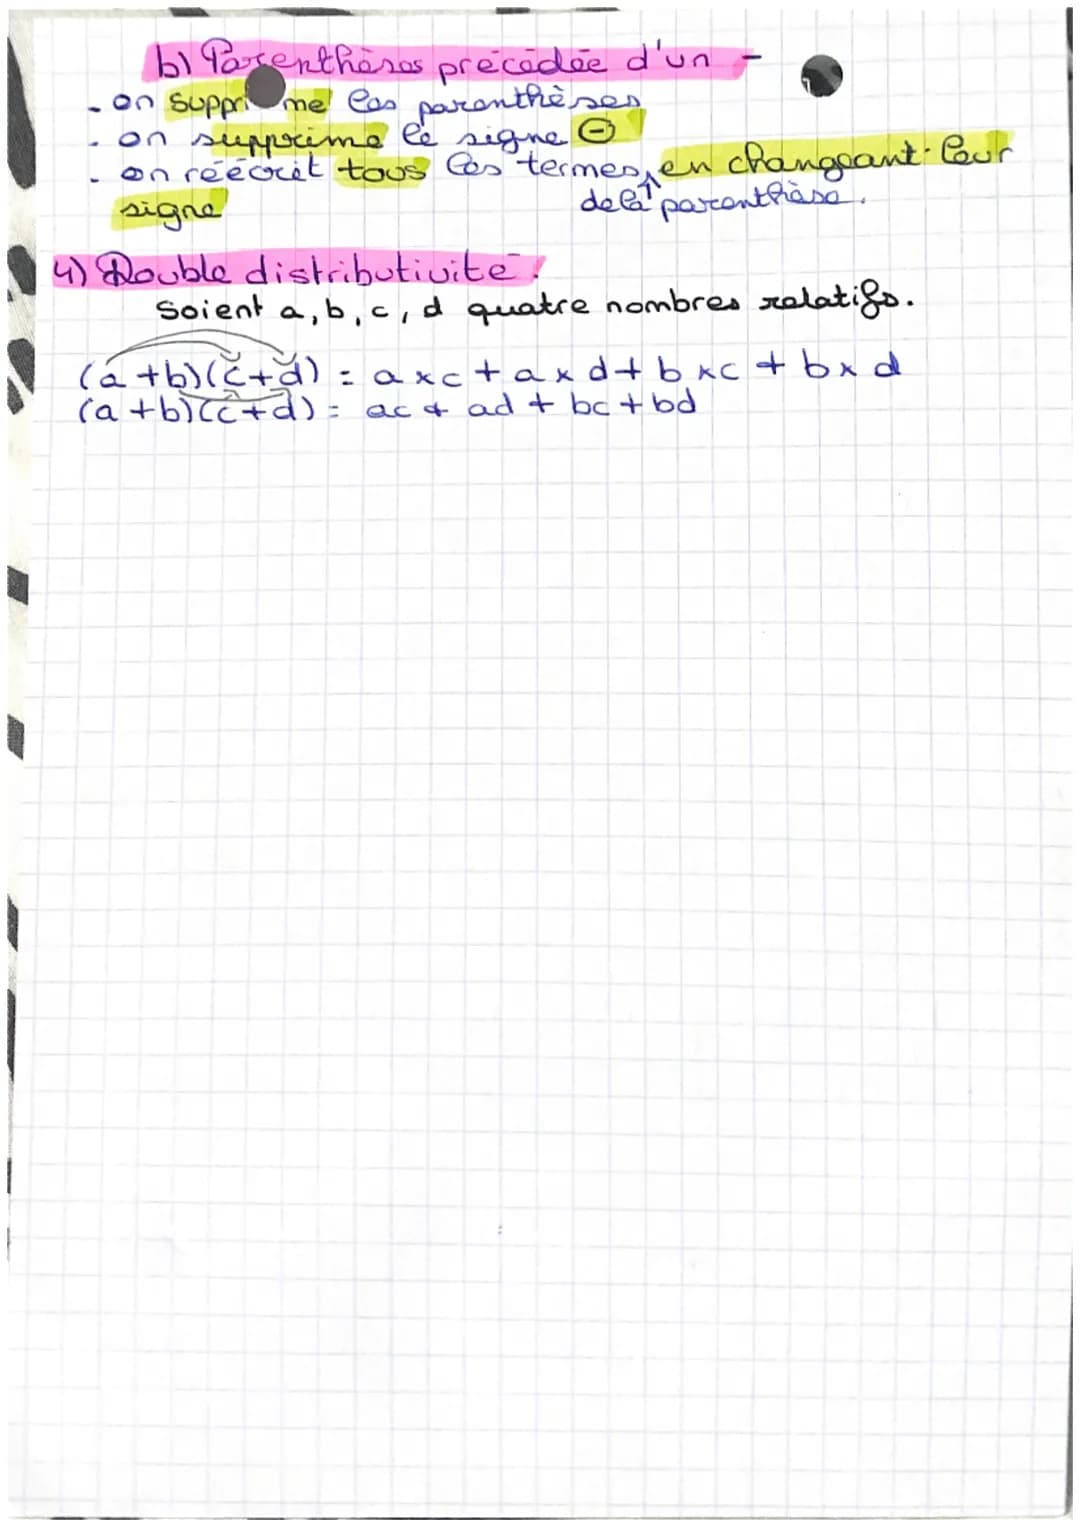 b) Parenthèses précédée d'un -
- on supprime les parenthèses
- on supprime le signe ⊖
- on réécrit tous les termes de la parenthèse. en changeant leur
signe
4) Double distributivité :
Soient a, b, c, d quatre nombres relatifs.
(a+b)(c+d) = a×c + a×d + b×c + b×d
(a+b)(c+d) = ac + ad + bc + bd